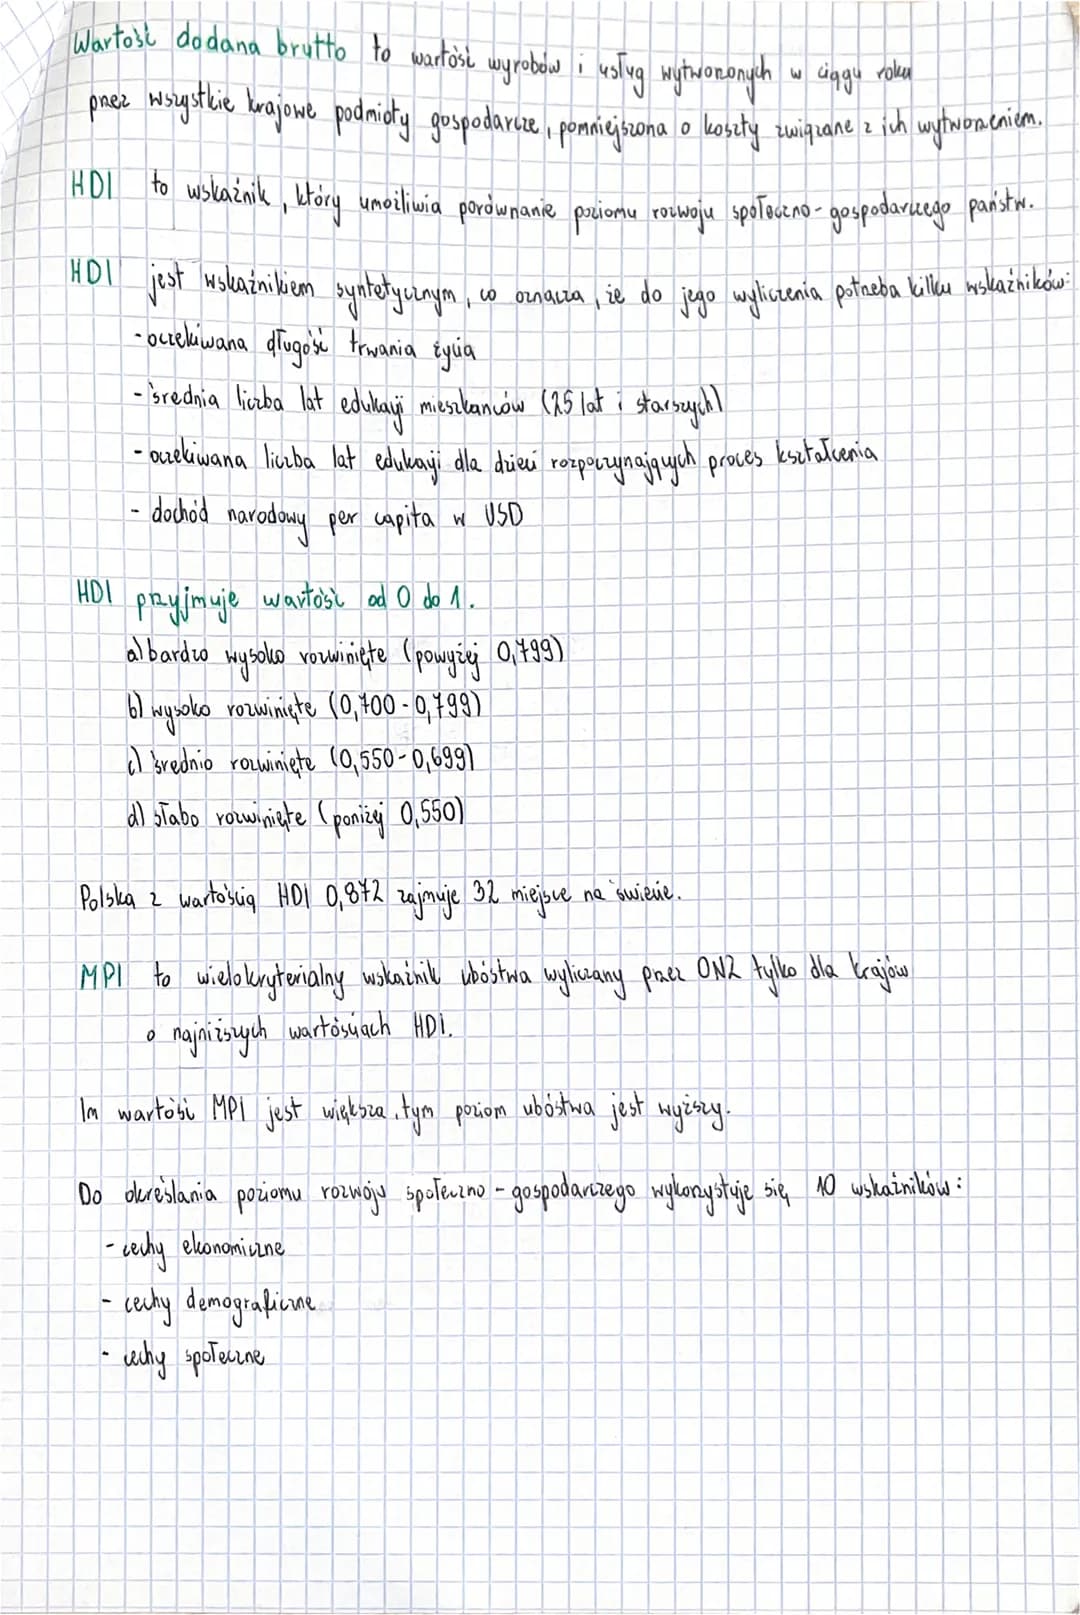 Wartość dodana brutto to wartość wyrobów i usług wytworzonych w ciągu roku
przez wszystkie krajowe podmioty gospodarcze, pomniejszona o koszty związane z ich wytworzeniem.
HDI to wskaźnik, który umożliwia porównanie poziomu rozwoju społeczno-gospodarczego państw.
HDI jest wskaźnikiem syntetycznym, co oznacza, że do jego wyliczenia potrzeba kilku wskaźników:
- oczekiwana długość trwania życia
- średnia liczba lat edukacji mieszkańców (25 lat i starszych)
- oczekiwana liczba lat edukacji dla dzieci rozpoczynających proces kształcenia
- dochód narodowy per capita w USD
HDI przyjmuje wartość od 0 do 1.
a) bardzo wysoko rozwinięte (powyżej 0,799)
b) wysoko rozwinięte (0,700-0,799)
c) średnio rozwinięte (0,550-0,699)
d) słabo rozwinięte (poniżej 0,550)
Polska z wartością HDI 0,872 zajmuje 32 miejsce na świecie.
MPI to wielokryterialny wskaźnik ubóstwa wyliczany przez ONZ tylko dla krajów
o najniższych wartościach HDI.
Im wartość MPI jest większa, tym poziom ubóstwa jest wyższy.
Do określania poziomu rozwoju społeczno-gospodarczego wykorzystuje się 10 wskaźników:
- cechy ekonomiczne
- cechy demograficzne
- cechy społeczne